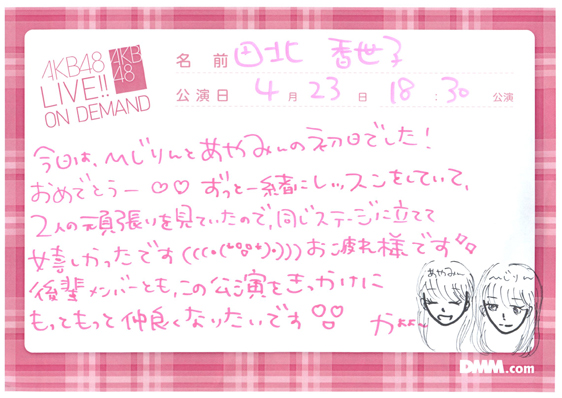 AKB48
LIVE!!
ON DEMAND
AKB
48
名 前 田北 香世子
公演日 4月 23日 18:30 公演
今日は、ひじりんとあやみんの初日でした!
おめでとうー♡♡ ずっと一緒にレッスンをしていて、
2人の頑張りを見ていたので、同じステージに立てて
嬉しかったです(((o(*°▽°*)o)))お疲れ様です
後輩メンバーとも、この公演をきっかけに
もっともっと仲良くなりたいです♡
あやみん
ひじりん
DMM.com